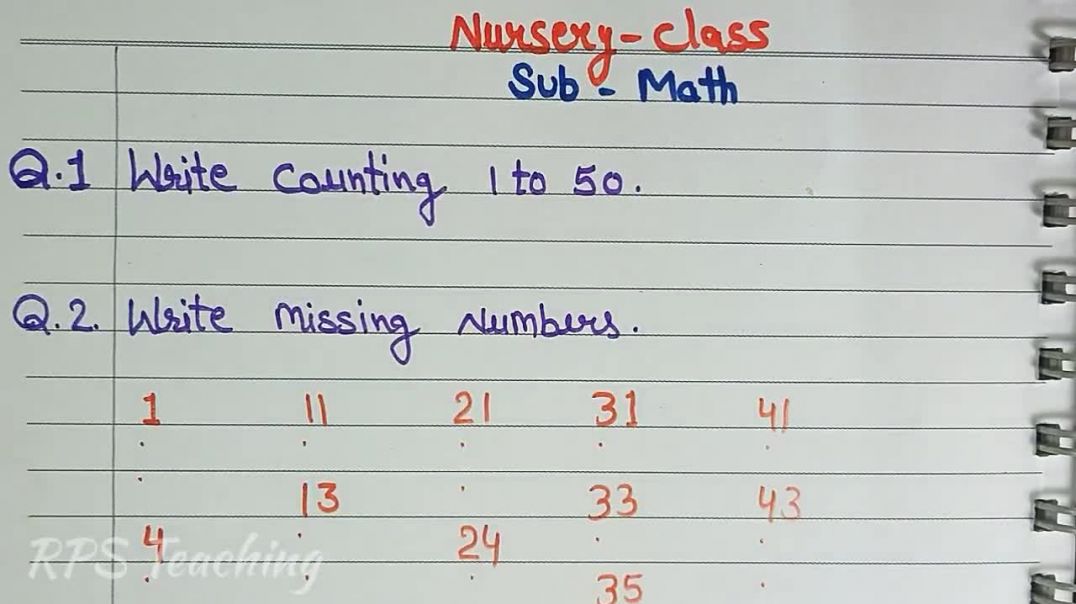 Nursery-class
Sub - Math
Q.1 Write counting 1 to 50.
Q.2. Write missing numbers.
1 11 21 31 41
. . . . .
. 13 . 33 43
4 . 24 . .
. . . 35 .
RPS Teaching